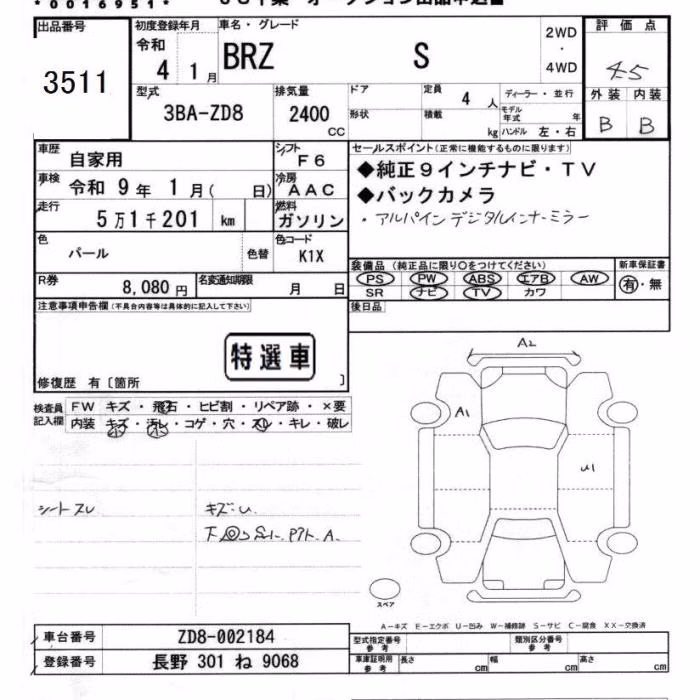 *0016951*
出品番号
3511
初度登録年月
令和
4 1月
車名・グレード
BRZ S
2WD
・
4WD
評価点
4.5
外装 内装
B B
型式
3BA-ZD8
排気量
2400
CC
ドア
形状
定員
4人
積載
kg
ディーラー・並行
モデル年式 年
ハンドル 左・右
車歴
自家用
シフト
F6
車検
令和 9年 1月( 日)
冷房
AAC
走行
5万1千201 km
燃料
ガソリン
色
パール
色替
色コード
K1X
R券
8,080円
名変通知期限
月 日
セールスポイント(正常に機能するものに限ります)
◆純正9インチナビ・TV
◆バックカメラ
・アルパインデジタルインナーミラー
装備品(純正品に限り○をつけてください)
PS PW ABS エアB AW
SR ナビ TV カワ
新車保証書
有・無
後日品
注意事項申告欄(不具合内容等は具体的に記入して下さい)
特選車
修復歴 有〔箇所 〕
検査員
記入欄
FW キズ・飛石・ヒビ割・リペア跡・×要
内装 キズ・汚レ・コゲ・穴・スレ・キレ・破レ
シートスレ
キズ・U
A2
A1
U1
スペア
A-キズ E-エクボ U-凹み W-補修跡 S-サビ C-腐食 XX-交換済
車台番号
ZD8-002184
登録番号
長野 301 ね 9068
型式指定番号
参考
類別区分番号
参考
車庫証明用
参考
長さ cm
幅 cm
高さ cm